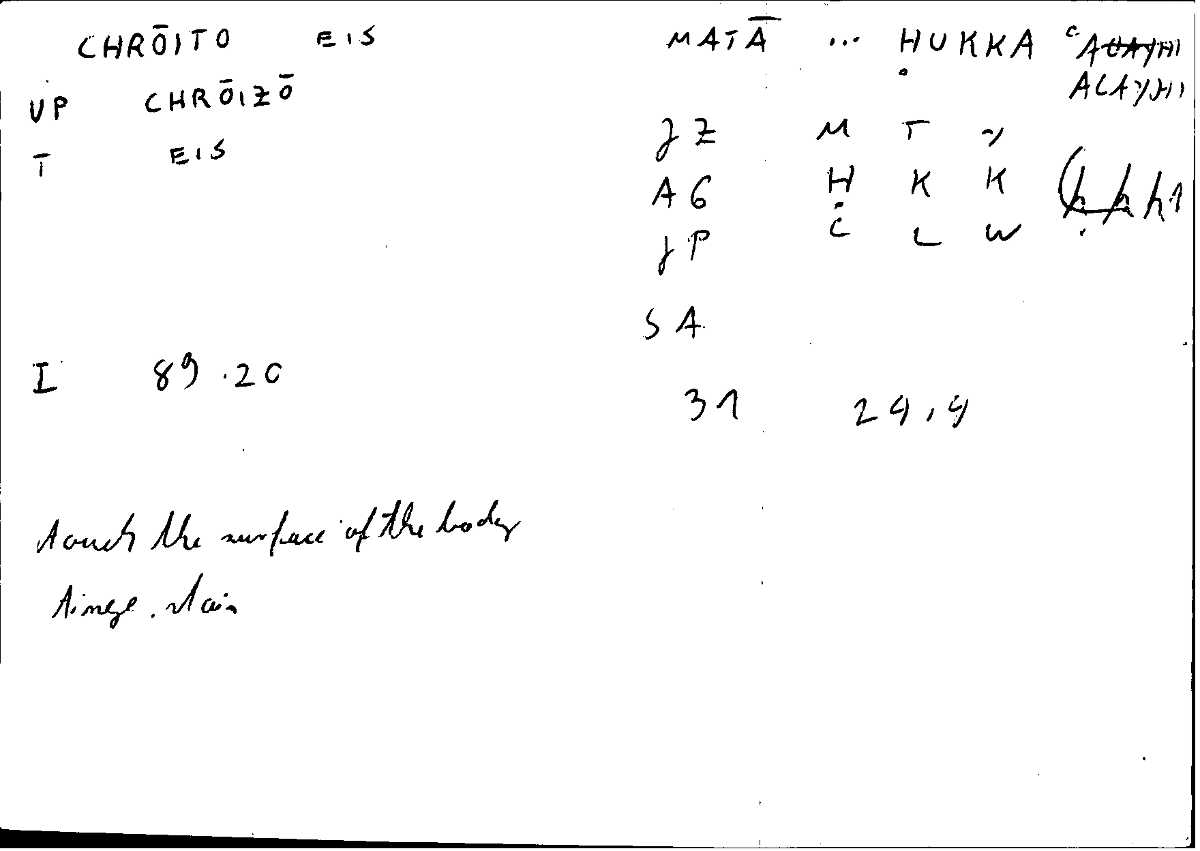 CHRŌITO EIS MATĀ ... ḤUKKA ʿALAYHI
ALAYHI
UP CHRŌIZŌ JZ M T Y
T EIS AG Ḥ K K
JP C L W
SA
I 89.20 31 24,4
touch the surface of the body
tinge. stain